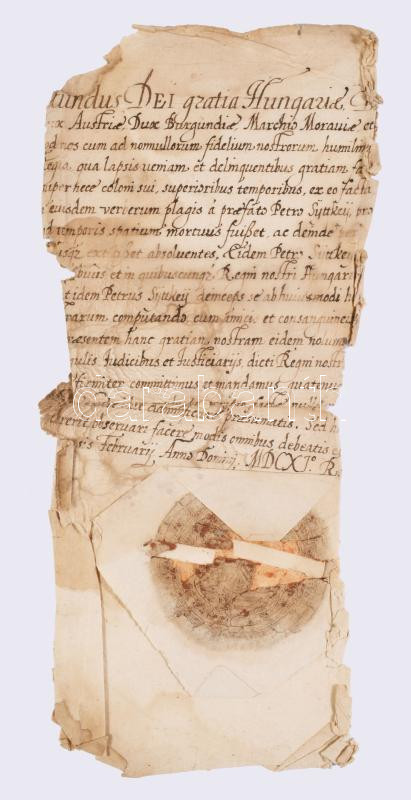 undus DEI gratia Hungariæ,
ux Austriæ Dux Burgundiæ Marchio Moraviæ et
od nos cum ad nonnullorum fidelium nostrorum humilima
Regia, qua lapsis veniam et delinquentibus gratiam fa
niper hece coloni sui, superioribus temporibus, ex eo facta
n eiusdem verierum plagis à præfato Petro Syukeij, pro
temporis spatium mortuus fuißet, ac deinde per
absoluentes, Eidem Petro Syukeij
ibuis et in quibuscunqz Regni nostri Hungar
t idem Petrus Syukeij deinceps se ab huiusmodi h
rarum computando cum amicis et consanguineis
ræsentem hanc gratiam nostram eidem
gulis Iudicibus et Iusticiarijs dicti Regni nostri
firmiter committimus et mandamus, quatenus
facere modis omnibus debeatis
sis Februarij, Anno Domini, MDCXIº. R